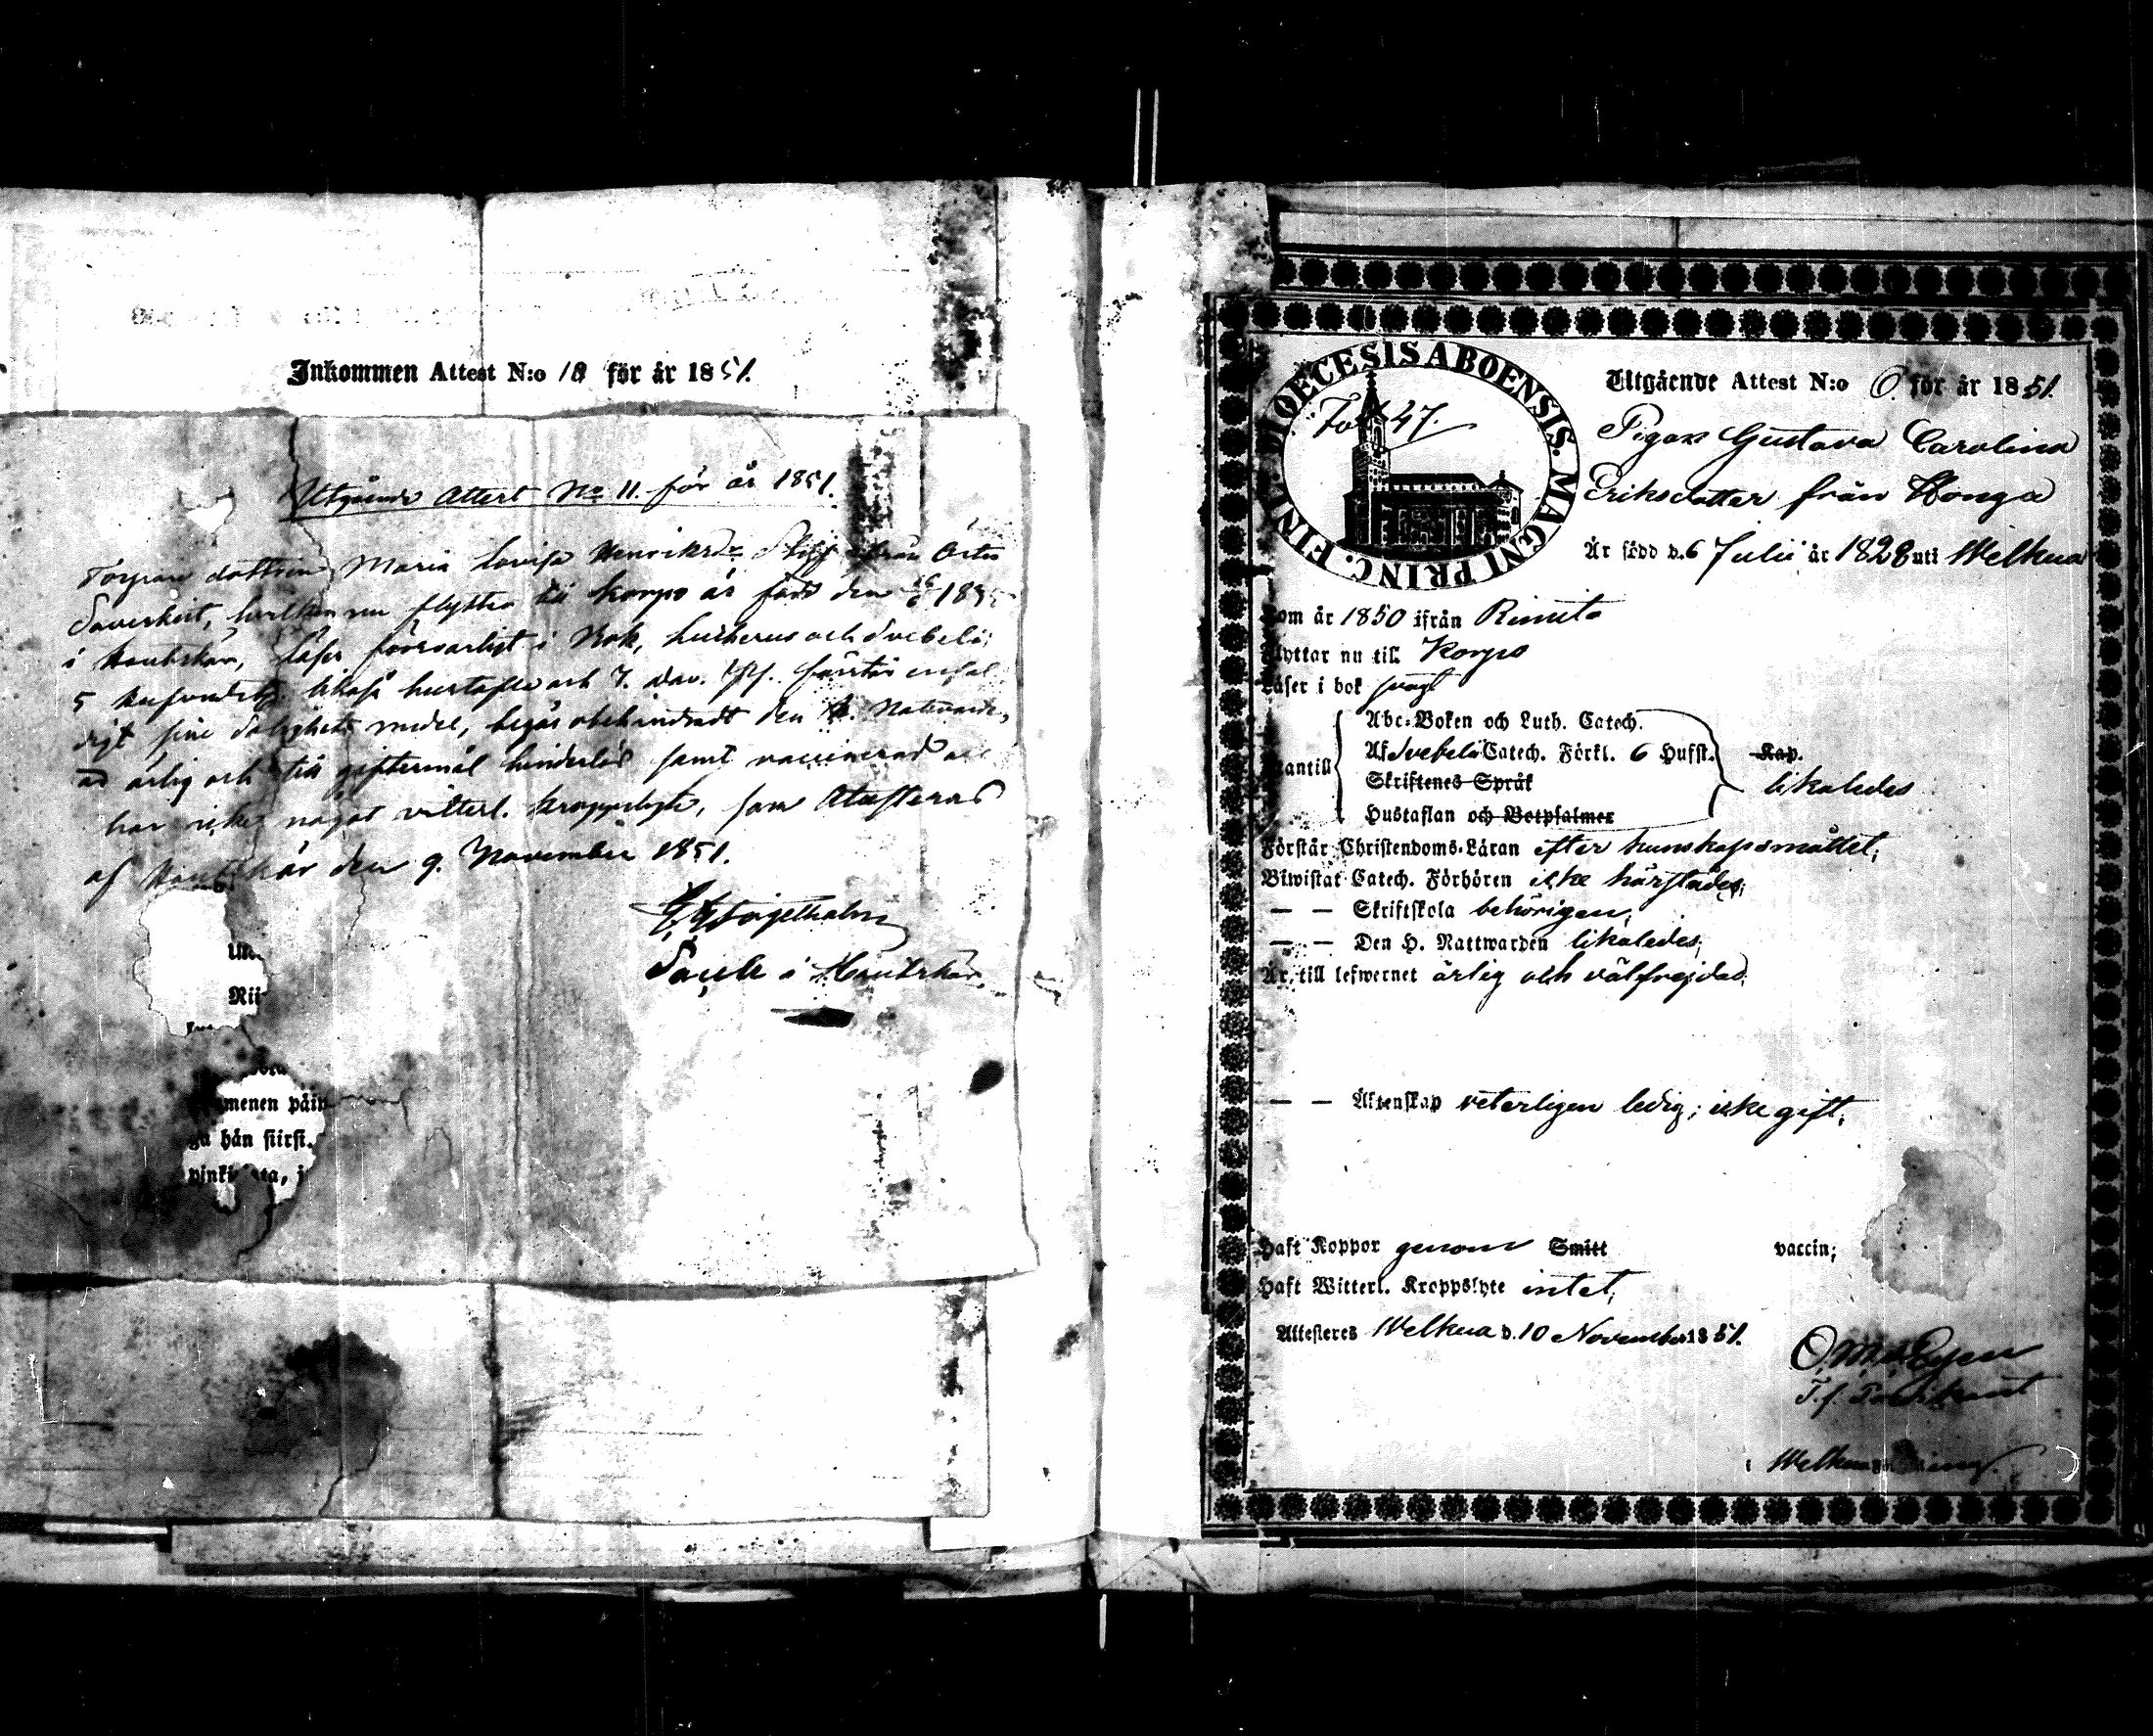 Inkommen Attest N:o 18 för år 1851.
Utgående Attest No 11. för år 1851.
Torpare dottren Maria Lovisa Henriksdr från Östra
Saverkeit, hvilken nu flyttar till Korpo är född den
i Houtskär, läser försvarligt i Bok, Lutherus och Svebelii
5 Hufvudst. likaså hustafla och 7. Dav. Ps. förstår enfal-
digt sine Salighets medel, begår obehindradt den H. Nattvard,
är ärlig och till giftermål hinderlös samt vaccinerad
har icke något vitterl. kroppslyte, som Attesteras
af Houtskär den 9. November 1851.
i Houtskär
Nii
menen päiw
hän siirsi.
Utgående Attest N:o 6. för år 1851.
DIOECESIS ABOENSIS. MAGNI PRINC. FINL.
Fol 47.
Pigan Gustava Carolina
Eriksdotter från Honga
Är född d. 6 Julii år 1828 uti Welkua
Kom år 1850 ifrån Rimito
Flyttar nu till Korpo
Läser i bok svagt
Utantill
Abc-Boken och Luth. Catech.
Af Svebelii Catech. Förkl. 6 Hufst. Kap.
Skriftenes Språk
likaledes
Hustaflan och Botpsalmer
Förstår Christendoms-Läran efter kunskapsmåttet;
Biwistat Catech. Förhören icke härstädes;
— — Skriftskola behörigen;
— — Den H. Nattwarden likaledes;
Är till lefwernet ärlig och välfrejdad;
— — Äktenskap veterligen ledig; icke gift;
Haft Koppor genom Smitt vaccin;
Haft Witterl. Kroppslyte intet;
Attesteres Welkua d. 10 November 1851.
T. f. Predikant
i Welkua